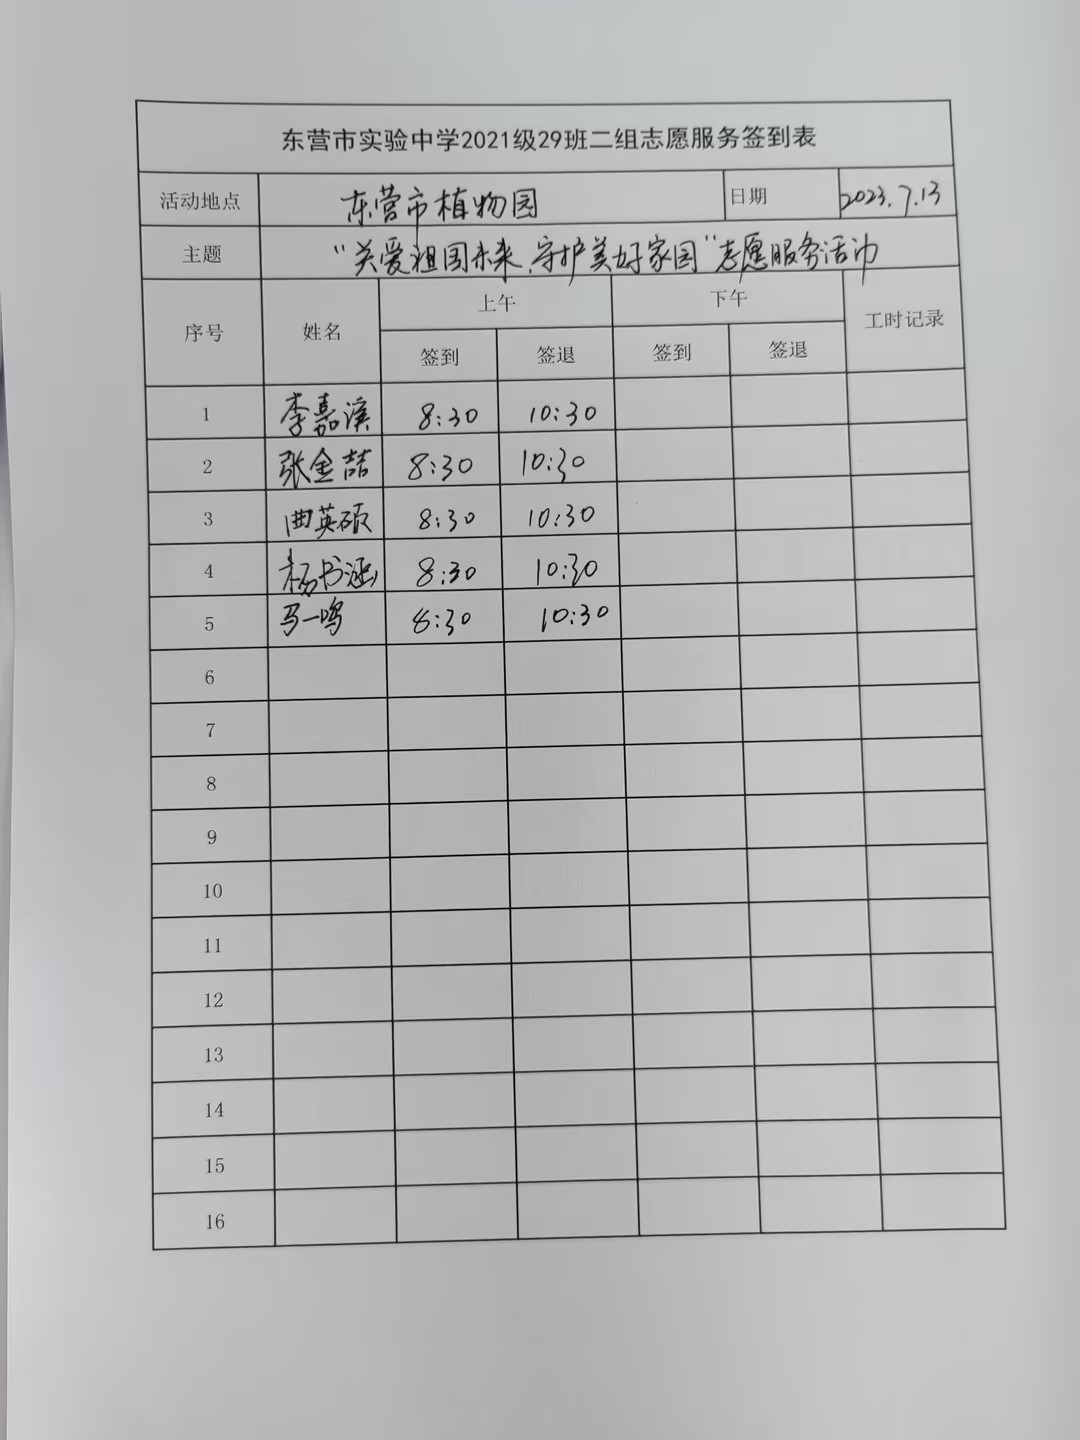 东营市实验中学2021级29班二组志愿服务签到表
活动地点 东营市植物园 日期 2023.7.13
主题 “关爱祖国未来、守护美好家园”志愿服务活巾
序号 姓名 上午 下午 工时记录
签到 签退 签到 签退
1 李嘉溪 8:30 10:30
2 张金喆 8:30 10:30
3 曲英硕 8:30 10:30
4 杨书涵 8:30 10:30
5 马一鸣 8:30 10:30
6
7
8
9
10
11
12
13
14
15
16